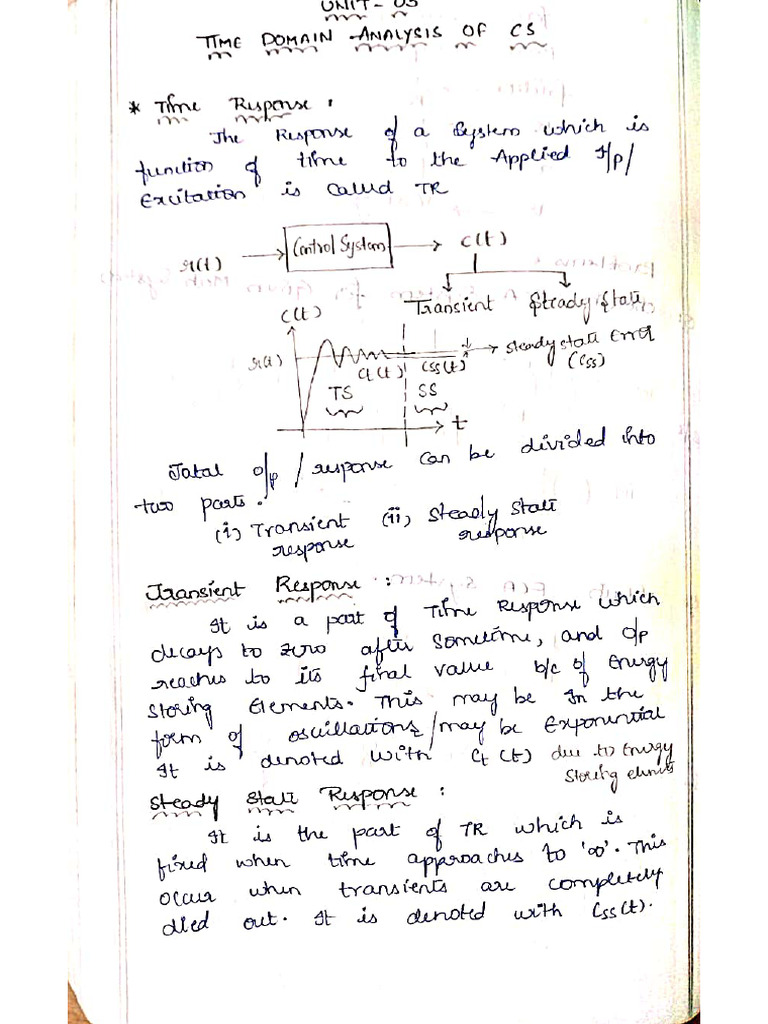 UNIT-03
TIME DOMAIN ANALYSIS OF CS
* Time Response :
The Response of a System which is
function of time to the Applied I/p/
Excitation is called TR
r(t) → Control System → c(t)
Transient Steady State
c(t)
r(t)
Ct(t) Css(t) → steady state Error
(ess)
TS SS
t
Total o/p / response can be divided into
two parts.
(i) Transient response (ii) Steady State response
Transient Response :
It is a part of Time Response which
decays to zero after sometime, and o/p
reaches to its final value b/c of Energy
Storing Elements. This may be In the
form of oscillations/may be Exponential
It is denoted with Ct(t) due to Energy
Storing elmnts
Steady State Response :
It is the part of TR which is
fixed when time approaches to '∞'. This
occur when transients are completely
died out. It is denoted with Css(t).